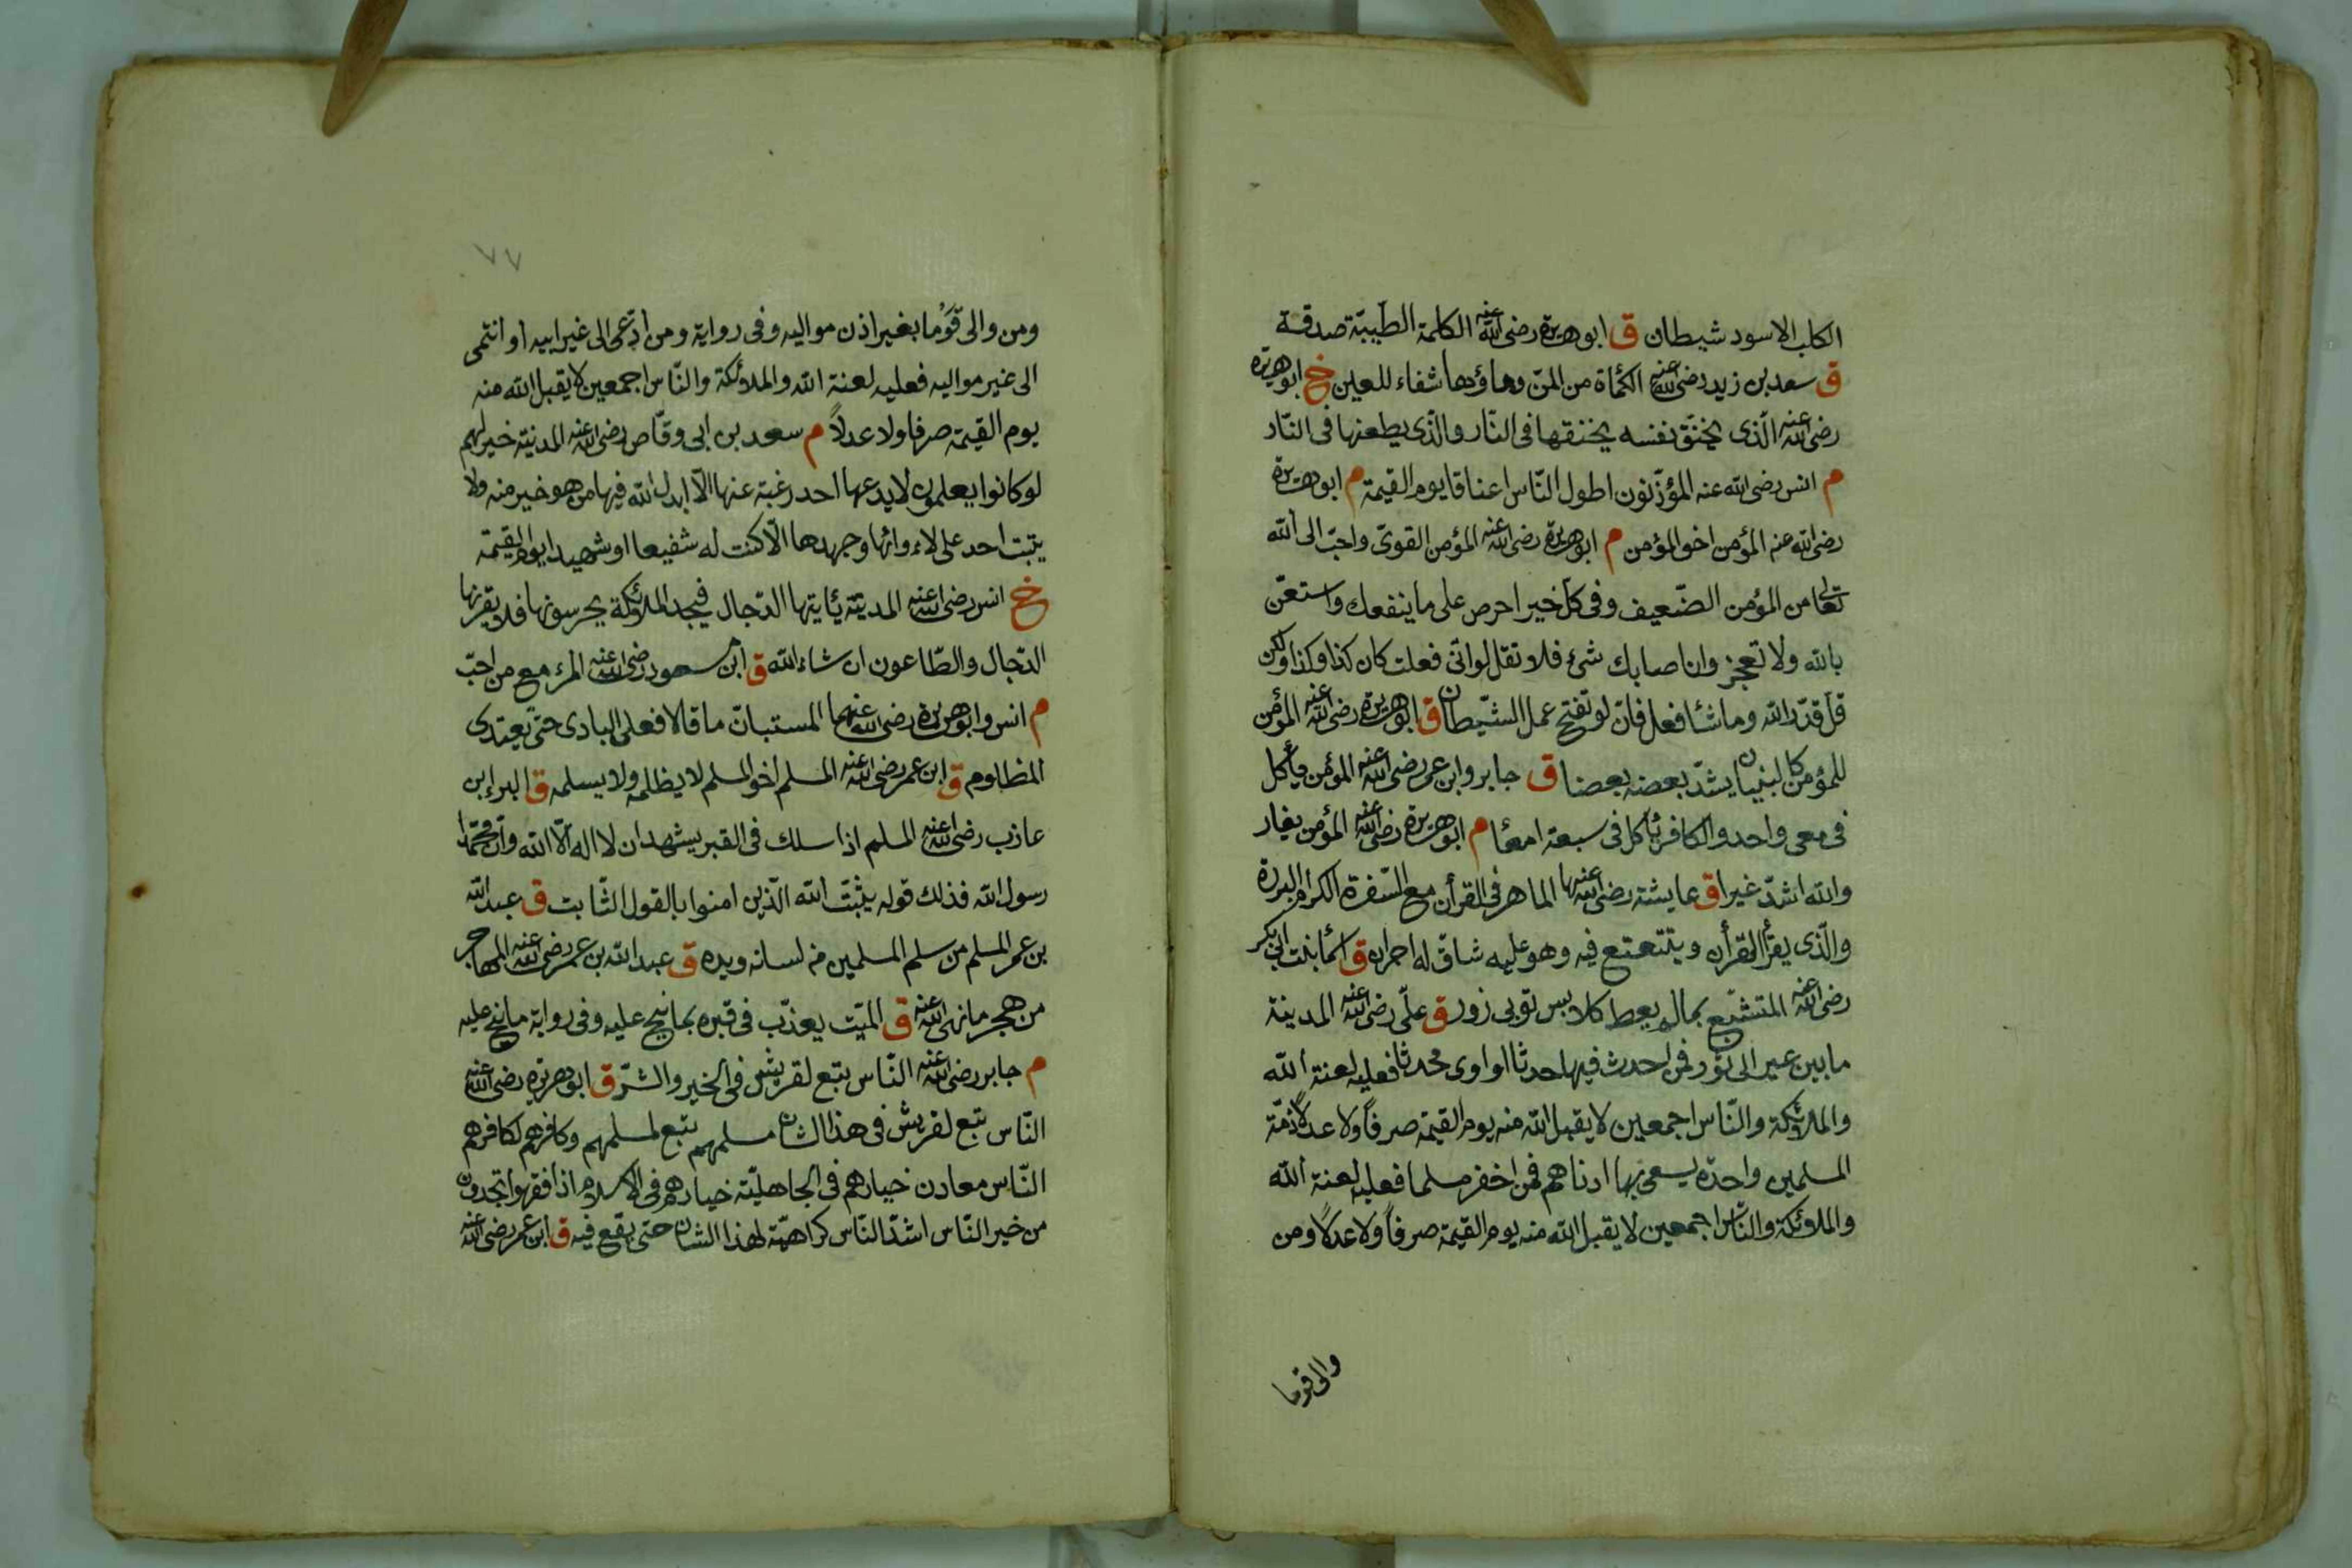 الكلب الاسود شيطان ق ابو هريرة رضى الله عنه الكلمة الطيبة صدقة
ق سعد بن زيد رضى الله عنه الكمأة من المنّ وماؤها شفاء للعين خ ابو هريرة
رضى الله عنه الّذى يخنق نفسه يخنقها فى النّار والّذى يطعنها فى النّار
م انس رضى الله عنه المؤذّنون اطول النّاس اعناقا يوم القيمة م ابو هريرة
رضى الله عنه المؤمن اخو المؤمن م ابو هريرة رضى الله عنه المؤمن القوىّ واحبّ الى الله
تعالى من المؤمن الضّعيف وفى كلّ خير احرص على ما ينفعك واستعن
بالله ولا تعجز وان اصابك شئ فلا تقل لو انّى فعلت كان كذا وكذا ولكن
قل قدّر الله وما شأ فعل فانّ لو تفتح عمل الشّيطان ق ابو هريرة رضى الله عنه المؤمن
للمؤمن كالبنيان يشدّ بعضه بعضا ق جابر وابن عمر رضى الله عنه المؤمن يأكل
فى معى واحد والكافر يأكل فى سبعة امعأ م ابو هريرة رضى الله عنه المؤمن يغار
والله اشدّ غيرا ق عايشة رضى الله عنها الماهر فى القرأن مع السّفرة الكرام البررة
والّذى يقرأ القرأن ويتتعتع فيه وهو عليه شاقّ له اجران ق اسمأ بنت ابى بكر
رضى الله عنه المتشبّع بما لم يعط كلابس ثوبى زور ق علّى رضى الله عنه المدينة
ما بين عير الى ثور فمن احدث فيها حدثا او اوى محدثا فعليه لعنة الله
والملائكة والنّاس اجمعين لا يقبل الله منه يوم القيمة صرفاً ولا عدلاً ذمّة
المسلمين واحدة يسعى بها ادناهم فمن اخفر مسلما فعليه لعنة الله
والملائكة والنّاس اجمعين لا يقبل الله منه يوم القيمة صرفاً ولا عدلاً ومن
والى قوما
٧٧
ومن والى قَوْما بغير اذن مواليه وفى رواية ومن ادّعى الى غير ابيه او انتمى
الى غير مواليه فعليه لعنة الله والملائكة والنّاس اجمعين لا يقبل الله منه
يوم القيمة صرفا ولا عدلاً م سعد بن ابى وقّاص رضى الله عنه المدينة خير لهم
لو كانوا يعلمون لا يدعها احد رغبة عنها الّا ابدل الله فيها من هو خير منه ولا
يثبت احد على لاءوائها وجهدها الّا كنت له شفيعا او شهيدا يوم القيمة
خ انس رضى الله عنه المدينة يأيتها الدّجال فيجد الملائكة يحرسونها فلا يقربها
الدّجال والطّاعون ان شاء الله ق ابن مسعود رضى الله عنه المرء مع من احبّ
م انس وابو هريرة رضى الله عنهما المستبانّ ما قالا فعلى البادى حتّى يعتدى
المظلوم ق ابن عمر رضى الله عنه المسلم اخو المسلم لا يظلمه ولا يسلمه ق البراء بن
عازب رضى الله عنه المسلم اذا سلك فى القبر يشهد ان لا اله الّا الله وانّ محمّدا
رسول الله فذلك قوله يثبّت الله الّذين امنوا بالقول الثّابت ق عبد الله
بن عمر المسلم من سلم المسلمين من لسانه ويده ق عبد الله بن عمر رضى الله عنه المهاجر
من هجر ما نهى الله عنه ق الميّت يعذّب فى قبره بما نيح عليه وفى رواية ما نيح عليه
م جابر رضى الله عنه النّاس تبع لقريش فى الخير والشّرّ ق ابو هريرة رضى الله عنه
النّاس تبع لقريش فى هذا الشان مسلمهم تبع لمسلمهم وكافرهم لكافرهم
النّاس معادن خيارهم فى الجاهليّة خيارهم فى الاسلام اذا فقهوا تجدون
من خير النّاس اشدّ النّاس كراهيّة لهذا الشان حتى يقع فيه ق ابن عمر رضى الله عنه